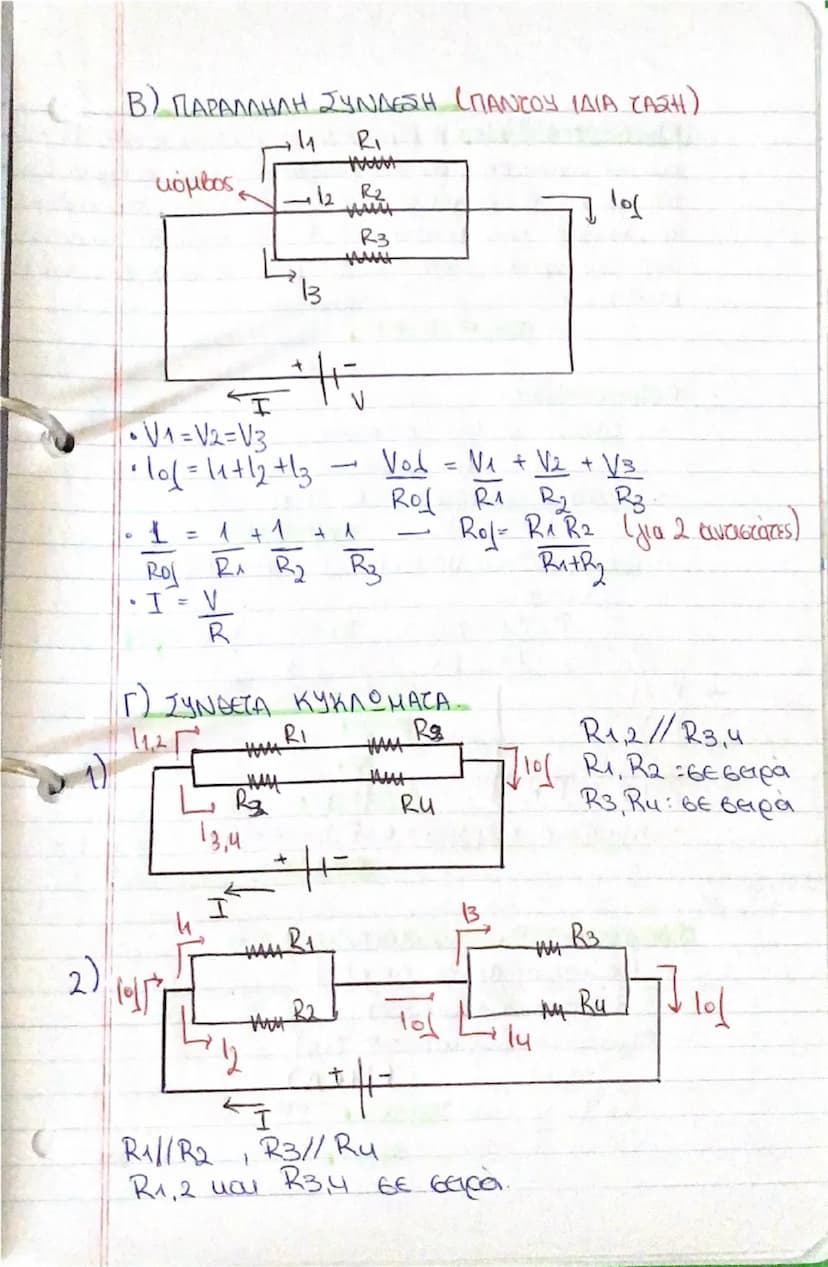 Β) ΠΑΡΑΛΛΗΛΗ ΣΥΝΔΕΣΗ (ΠΑΝΤΟΥ ΙΔΙΑ ΤΑΣΗ)
I1 R1
κόμβος I2 R2 Iολ
R3
I3
+ -
I V
• V1 = V2 = V3
• Iολ = I1 + I2 + I3 → Vολ/Rολ = V1/R1 + V2/R2 + V3/R3
• 1/Rολ = 1/R1 + 1/R2 + 1/R3 → Rολ = R1R2/R1+R2 (για 2 αντιστάτες)
• I = V/R
Γ) ΣΥΝΘΕΤΑ ΚΥΚΛΩΜΑΤΑ.
I1,2 R1 R2 R1,2 // R3,4
1) Iολ R1, R2 : σε σειρά
R3 R4 R3, R4 : σε σειρά
I3,4
+ -
I
I1 R1 I3 R3
2) Iολ R2 Iολ R4 Iολ
I2 I4
+ -
I
R1//R2 , R3//R4
R1,2 και R3,4 σε σειρά.